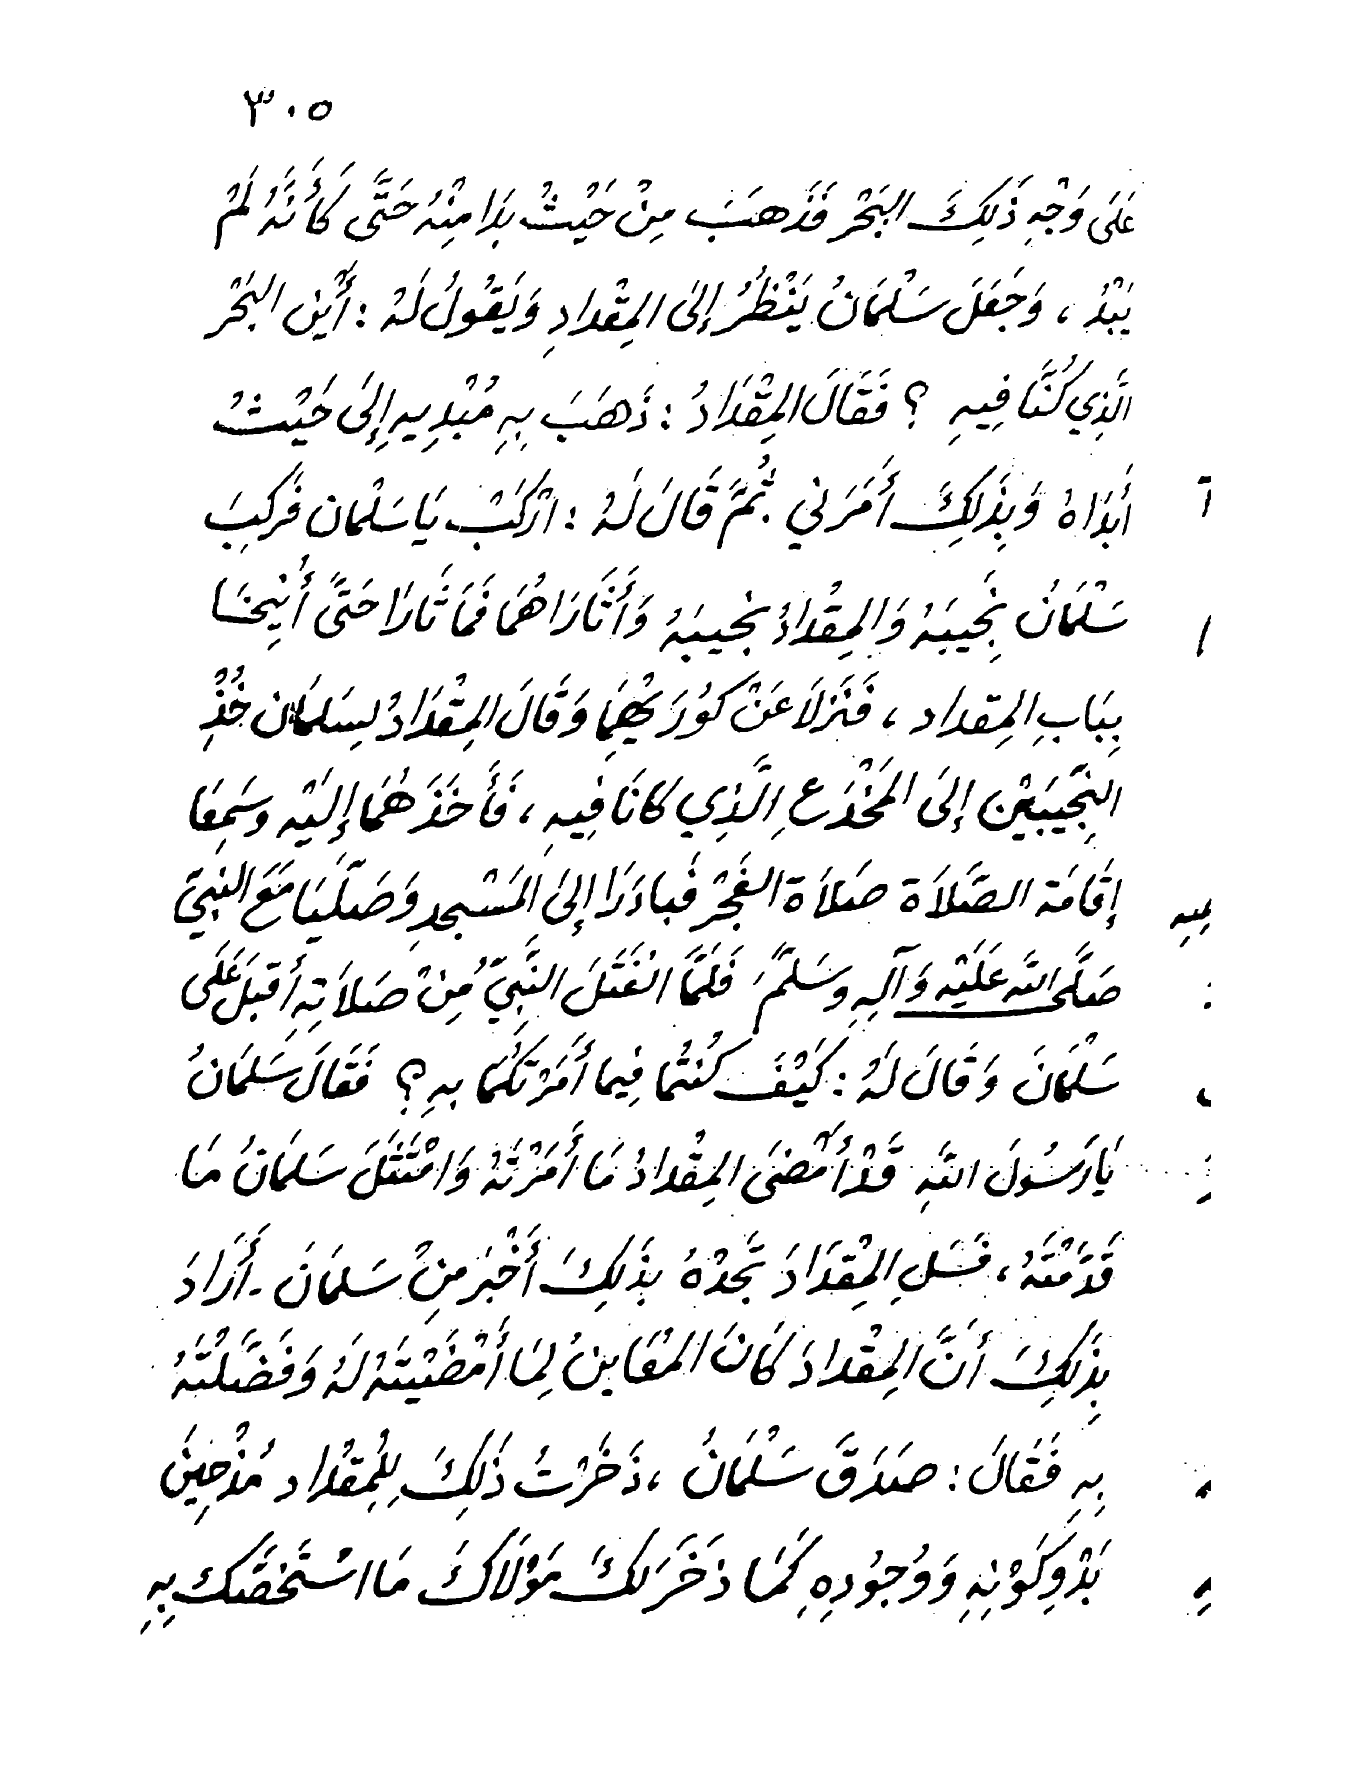 ٣٠٥
عَلَى وَجْهِ ذَلِكَ البَحْرِ فَذَهبَ مِنْ حَيْثُ بدَا مِنْهُ حَتَّى كَأَنَّهُ لَمْ
يَبْدُ ، وَجَعَلَ سَلْمَانُ يَنْظُرُ إلىَ المِقْدادِ وَيَقُولُ لَهُ : أَيْن البَحْر
الَّذِي كُنَّا فِيهِ ؟ فَقَالَ المِقْدَادُ : ذَهَبَ بِهِ مُبْدِيهِ إِلَى حَيْثُ
أَبدَاهُ وَبِذَلِكَ أَمَرَني . ثُمَّ قَالَ لَهُ : ارْكَبْ يَا سَلْمَان فَركِبَ
سَلْمَانُ نِجَيبَهُ وَالمِقْدادُ نجيبَهُ وَأَثَارَاهُمَا فَمَا ثَارَا حَتَّى أُنِيخَا
بِبَابِ المِقداد ، فَنَزلاَ عَنْ كَوُرَيْهِمَا وَقَالَ المِقْدَادُ لِسَلمَان خُذْ
النِجَّيبَيْن إلىَ المَخْدَع الَّذِي كَانَا فِيهِ ، فَأَخَذَهُمَا إِليْه وسَمِعَا
إقَامَة الصَّلاَة صَلاَة الفَجْر فَبادَرَا إلىَ المَسْجِدِ وَصَلَّيَا مَعَ النبيّ
صَلَّى اللَّه عَلَيْه وَآلِهِ وسَلَّمَ فَلَمَّا انْفَتَلَ النَّبِيّ مِنْ صَلاَتِهِ أَقبَلَ عَلَى
سَلْمَانَ وَقَالَ لَهُ : كَيْفَ كُنتُما فِيما أَمَرْتكُمَا بِهِ ؟ فَقَالَ سَلمَانُ
يَا رَسُولَ اللَّهِ قَدْ أَمْضَى المِقْدادُ مَا أَمَرْتَهُ وَامْتَثَلَ سَلمَانُ مَا
قَدَّمْتَهُ ، فسَلِ المِقْدَادَ تَجدْهُ بذَلِكَ أَخْبَر مِنْ سَلمَانَ . أَرَادَ
بِذَلِكَ أنَّ المِقْدادَ كَانَ المُعَاينُ لِمَا أَمْضَيْتَهُ لَهُ وَفَضَّلْتَهُ
بِهِ فَقَالَ : صَدَقَ سَلْمَانُ ، ذَخَرْتُ ذَلِكَ لِلْمِقْدَاد مُذْحِينَ
بَدْوِ كَوْنِهِ وَوُجُودِهِ كَمَا ذخَرَ لكَ مَوْلاَكَ مَا اسْتَخصَّك بِهِ